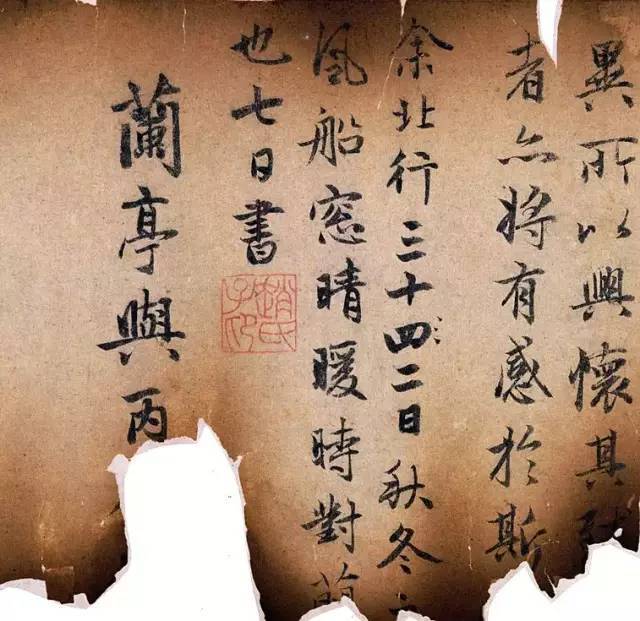 異所以興懷其致
者亦將有感於斯
余北行三十四二日秋冬
風船窗晴暖時對蘭
也七日書
趙氏子昂
蘭亭與丙